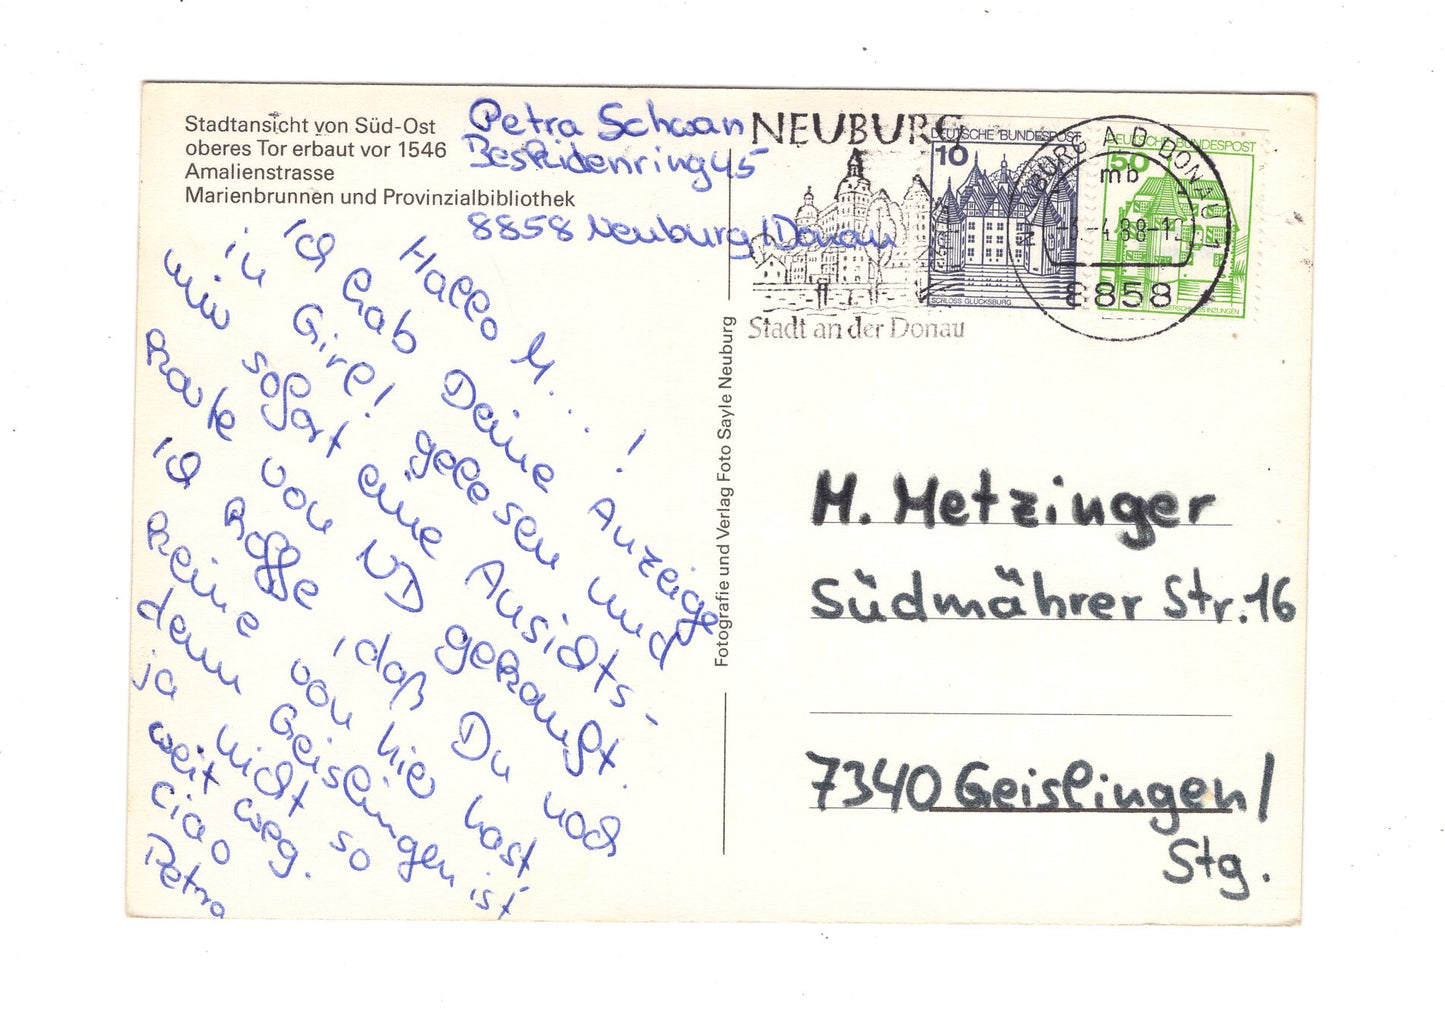 Stadtansicht von Süd-Ost
oberes Tor erbaut vor 1546
Amalienstrasse
Marienbrunnen und Provinzialbibliothek
Petra Schwan
Beskidenring 45
8858 Neuburg/Donau
Hallo M...!
Ich hab Deine Anzeige
in Girl! gelesen und
mir sofort eine Ansichts-
karte von ND gekauft.
Ich hoffe, daß Du noch
keine von hier hast
denn Geislingen ist
ja nicht so
weit weg.
Ciao
Petra
Fotografie und Verlag Foto Sayle Neuburg
NEUBURG
Stadt an der Donau
DEUTSCHE BUNDESPOST
10
SCHLOSS GLÜCKSBURG
DEUTSCHE BUNDESPOST
50
BURG A D DONAU
mb
-4.88-
8858
M. Metzinger
Südmährer Str. 16
7340 Geislingen/
Stg.